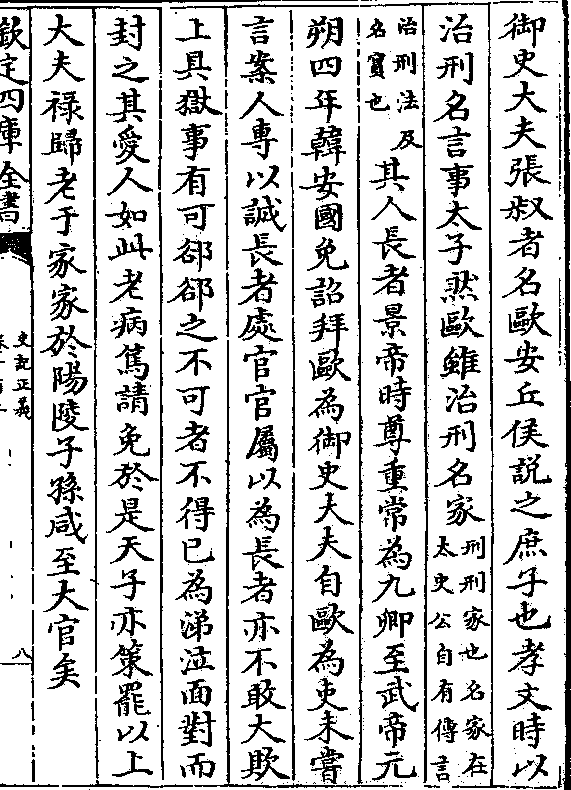 御史大夫張叔者名歐安丘侯説之庶子也孝文時以
治刑名言事太子然歐雖治刑名家
刑刑家也名家在
太史公自有傳言
治刑法及
名實也
其人長者景帝時尊重常為九卿至武帝元
朔四年韓安國免詔拜歐為御史大夫自歐為吏未嘗
言案人專以誠長者處官官屬以為長者亦不敢大欺
上具獄事有可郤郤之不可者不得已為涕泣面對而
封之其愛人如此老病篤請免於是天子亦策罷以上
大夫禄歸老于家家於陽陵子孫咸至大官矣
欽定四庫全書
史記正義
八